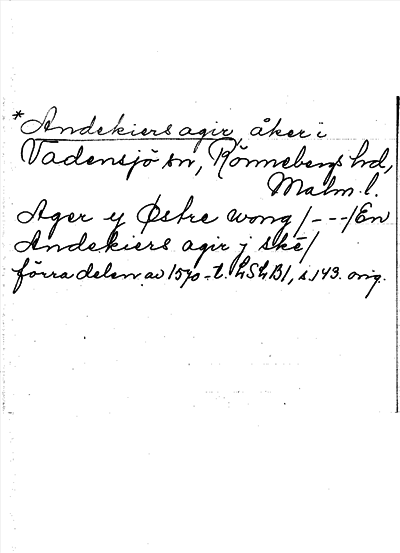 *Andekiers agir, åker i
Vadensjö sn, Rönnebergs hd,
Malm. l.
Ager ij Østre wong /---/ En
Andekiers agir j ské/
förra delen av 1570-t. LSLB1, s. 143. orig.